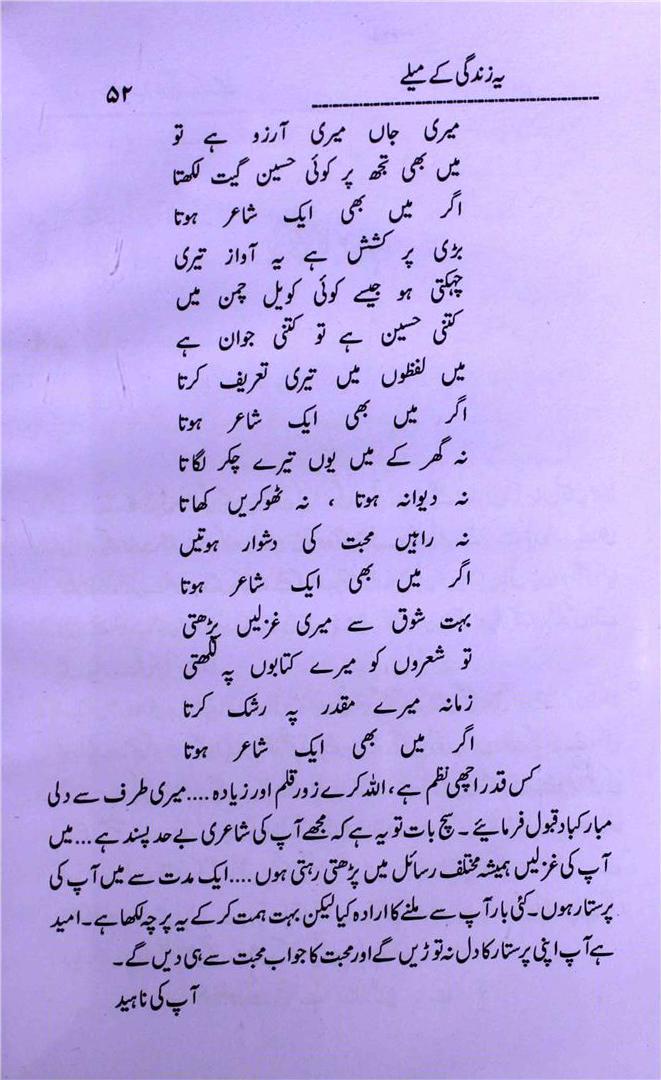 یہ زندگی کے میلے
۵۲
میری جاں میری آرزو ہے تو
میں بھی تجھ پر کوئی حسین گیت لکھتا
اگر میں بھی ایک شاعر ہوتا
بڑی پر کشش ہے یہ آواز تیری
چہکتی ہو جیسے کوئی کویل چمن میں
کتنی حسین ہے تو کتنی جوان ہے
میں لفظوں میں تیری تعریف کرتا
اگر میں بھی ایک شاعر ہوتا
نہ گھر کے میں یوں تیرے چکر لگاتا
نہ دیوانہ ہوتا ، نہ ٹھوکریں کھاتا
نہ راہیں محبت کی دشوار ہوتیں
اگر میں بھی ایک شاعر ہوتا
بہت شوق سے میری غزلیں پڑھتی
تو شعروں کو میرے کتابوں پہ لکھتی
زمانہ میرے مقدر پہ رشک کرتا
اگر میں بھی ایک شاعر ہوتا
کس قدر اچھی نظم ہے، اللہ کرے زور قلم اور زیادہ .... میری طرف سے دلی
مبارکباد قبول فرمائیے۔ سچ بات تو یہ ہے کہ مجھے آپ کی شاعری بے حد پسند ہے ... میں
آپ کی غزلیں ہمیشہ مختلف رسائل میں پڑھتی رہتی ہوں .... ایک مدت سے میں آپ کی
پرستار ہوں۔ کئی بار آپ سے ملنے کا ارادہ کیا لیکن بہت ہمت کر کے یہ پرچہ لکھا ہے۔ امید
ہے آپ اپنی پرستار کا دل نہ توڑیں گے اور محبت کا جواب محبت سے ہی دیں گے۔
آپ کی ناہید